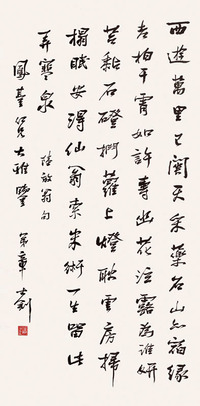 西遊萬里已關天采藥名山亦宿緣
老柏干霄如許壽幽花泣露為誰妍
苔黏石磴捫蘿上燈耿雲房掃
榻眠安得仙翁索米術一生留此
弄寒泉
陸放翁句
鳳臺兄大雅鑒
弟章士釗